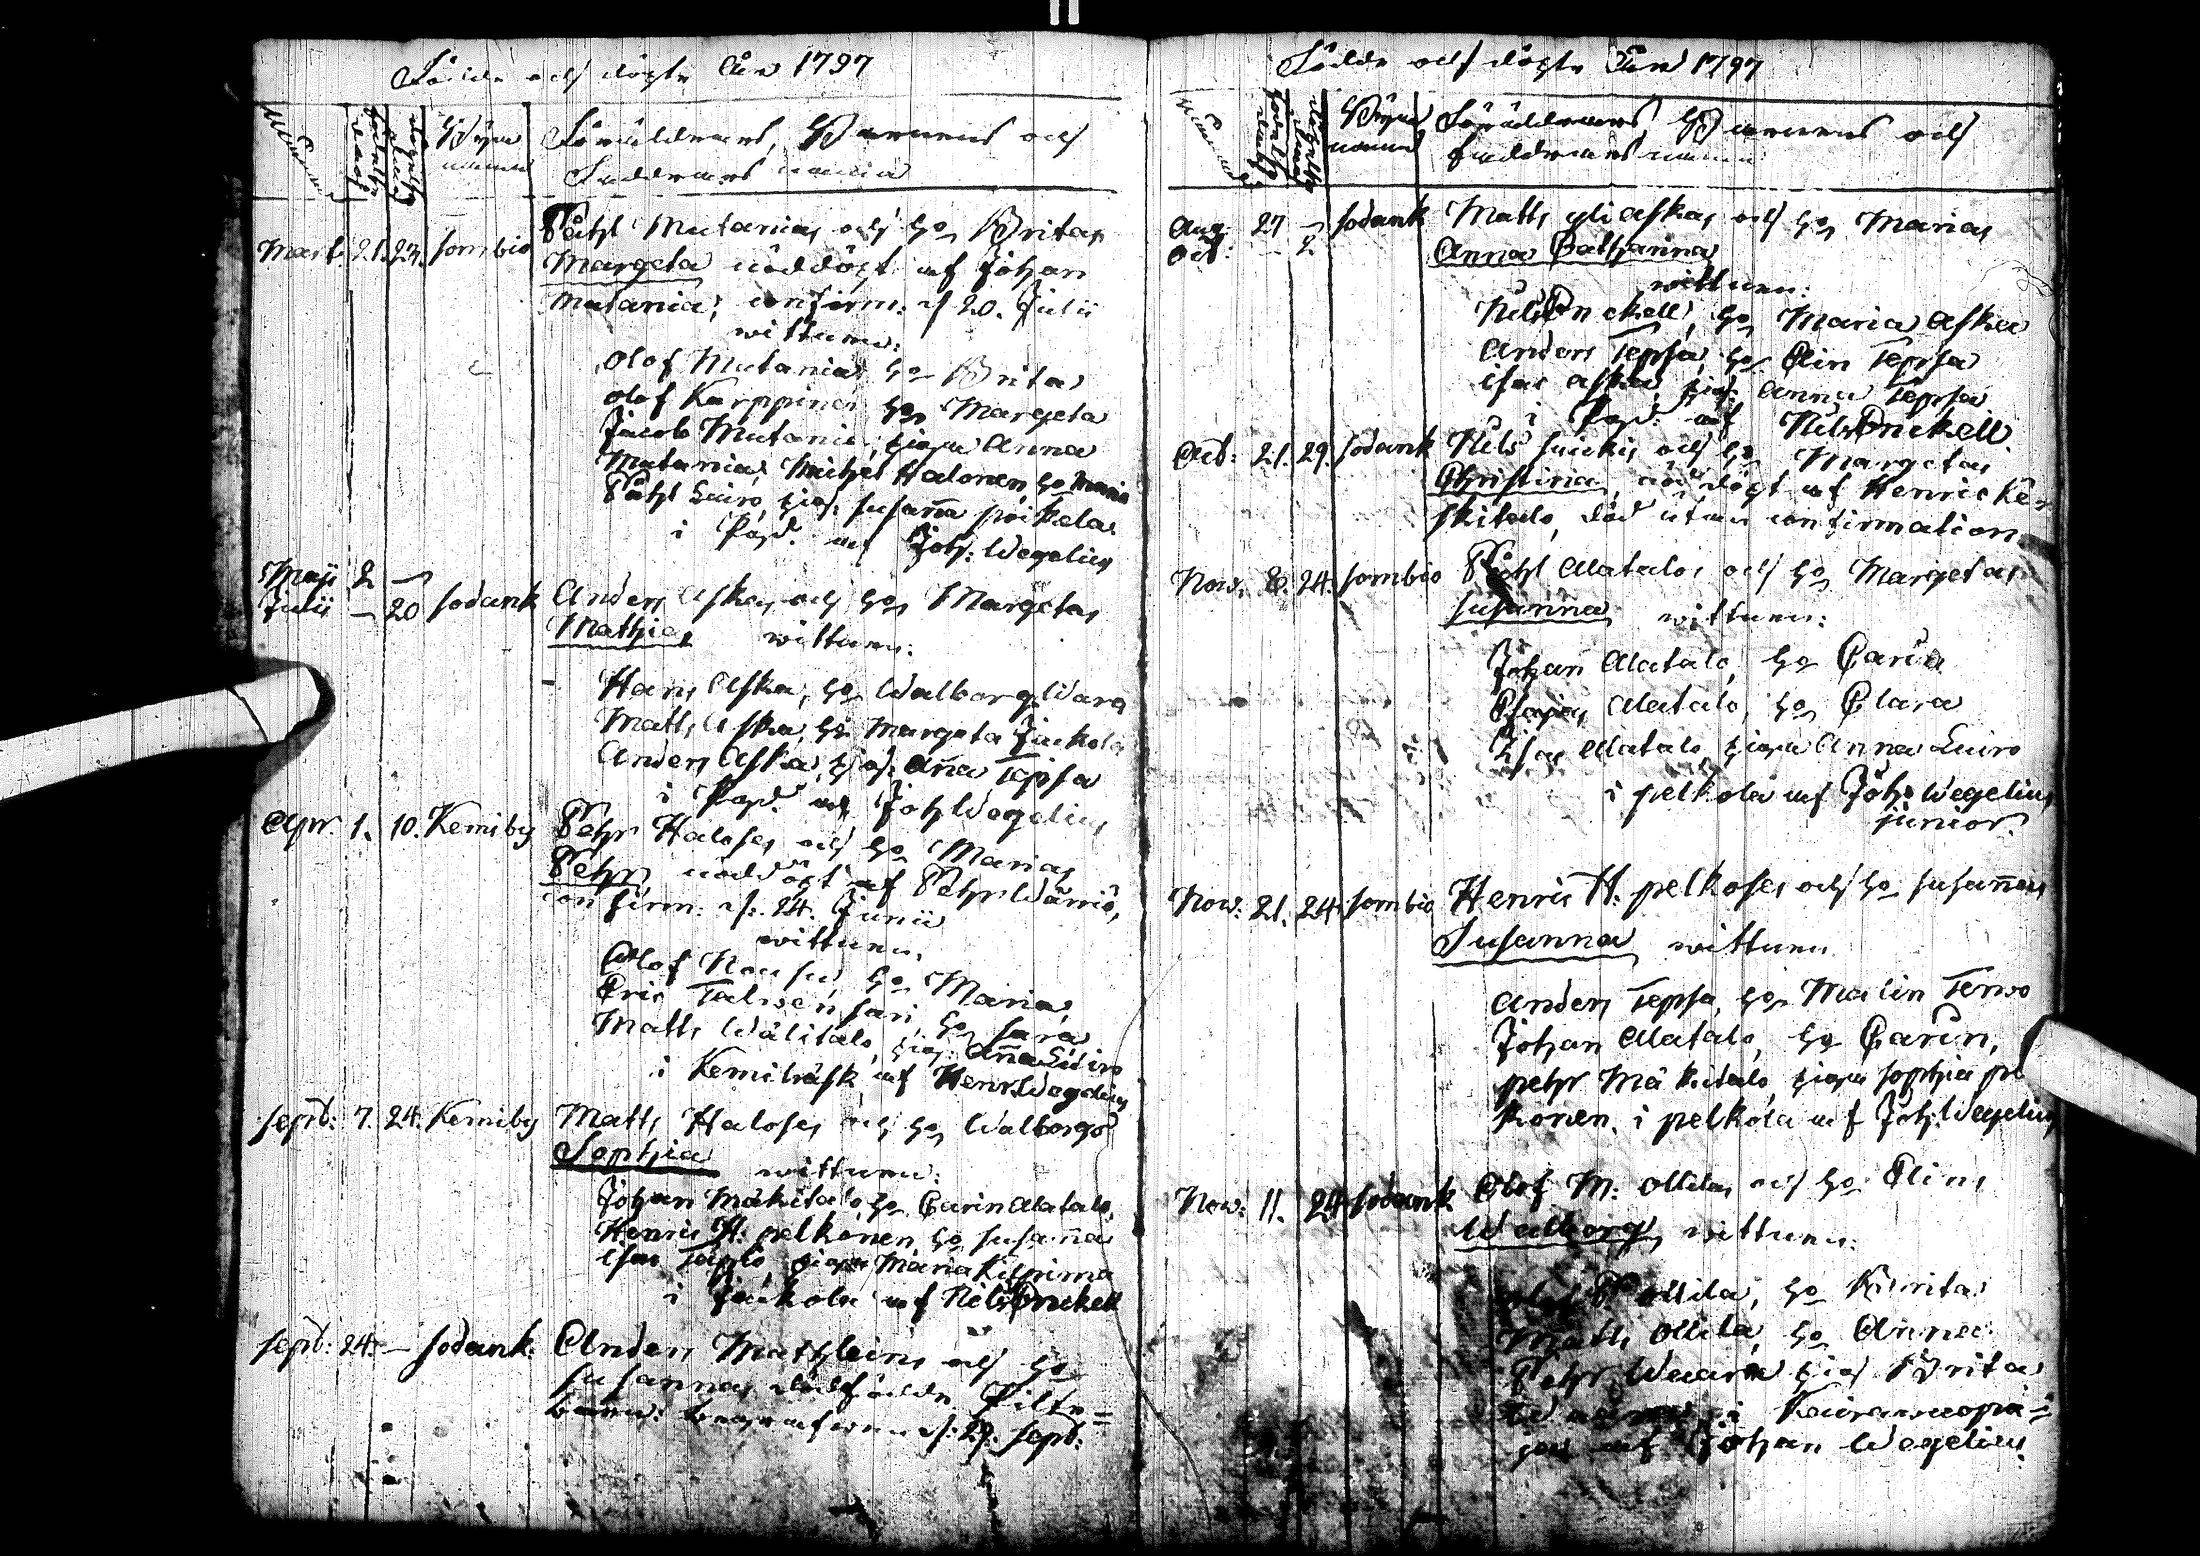 Födde och döpte Åhr 1797
Månader
födelse
dag
döpelse
dag
Byns
namn
Föräldrars, Barnens och
Faddrars namn
Mart. 21. 23. Sombio
Påhl Mutenias och ho Britas
Margeta nöddöpt af Johan
Mutenia; confirm: d 20. Julii
wittnen:
Olof Mutenia ho Brita
Olof Karppinen ho Margeta
Jacob Mutenia, piga Anna
Mutenia, Michel Halonen ho Maria
Påhl Luiro, pig: Susaña
i Pagd. af Joh: Wegelius
Maji 2 —
Julii — 20 Sodank
Anders Askas och ho Margetas
Mathias wittnen:
Hans Aska, ho Walborg Wara
Matts Aska, ho Margeta Jaakola
Anders Aska, pig: Aña Tepsa
i Pagd. af Joh Wegelius
Apr. 1. 10. Kemiby
Pehr Haloses och ho Marias
Pehr nöddöpt af Pehr Wäriö,
confirm: d: 24. Junii
wittnen,
Olof Nousu, ho Maria,
Eric Talwensari, ho Sara
Matts Wälitalo, pig: Aña Luiro
i Kemiträsk af Henr Wegelius
Sept: 7. 24. Kemiby
Matts Haloses och ho Walborgs
Sophia wittnen:
Johan Mäkitalo, ho Carin Alatalo,
Henric H: Pelkonen ho Susaña
Isac Tapio, piga Maria Kilprima
i Jaakola af Nils Enckell
Sept: 24. — Sodank.
Anders Mathleins och ho
Susannas dödfödde Pilte=
barn: begrafwen d: 29. Sept:
Födde och döpte Åhr 1797
Månader
födelse
dag
döpelse
dag
Byns
namn
Föräldrars, Barnens och
Faddrars namn
Aug: 27 — Sodank
Oct: — 2
Matts yli Askas och ho Marias
Anna Catharina
wittnen:
Nils Enckell, ho Maria Aska
Anders Tepsa, ho Elin Tepsa
Isac Aska, pig: Anna Tepsa
i Pagd. af Nils Enckell
Oct: 21. 29. Sodank
Nils och ho Margetas
Christina, nöddöpt af Henric Ker=
skitalo, död utan confirmation.
Now. 8. 24. Sombio
Påhl Alatalos och ho Margetas
Susanna wittnen:
Johan Alatalo, ho Carin
Esaias Alatalo, ho Clara
Isac Alatalo, piga Anna Luiro
i Pelkola af Joh: Wegelius
junior.
Now: 21. 24. Sombio
Henric H. Pelkoses och ho Susañas
Susanna wittnen
Anders Tepsa, ho Malin Terwo
Johan Alatalo, ho Carin,
Pehr Mäkitalo, piga Sophia Pel
konen. i Pelkola af Joh: Wegelius
Now: 11. 24 Sodank
Olof M: Ollilas och ho Elins
Walborg, wittnen:
Ollila, ho Brita
Matts Ollila, ho Anna
Pehr Waara pig Brita
i
af Johan Wegelius.